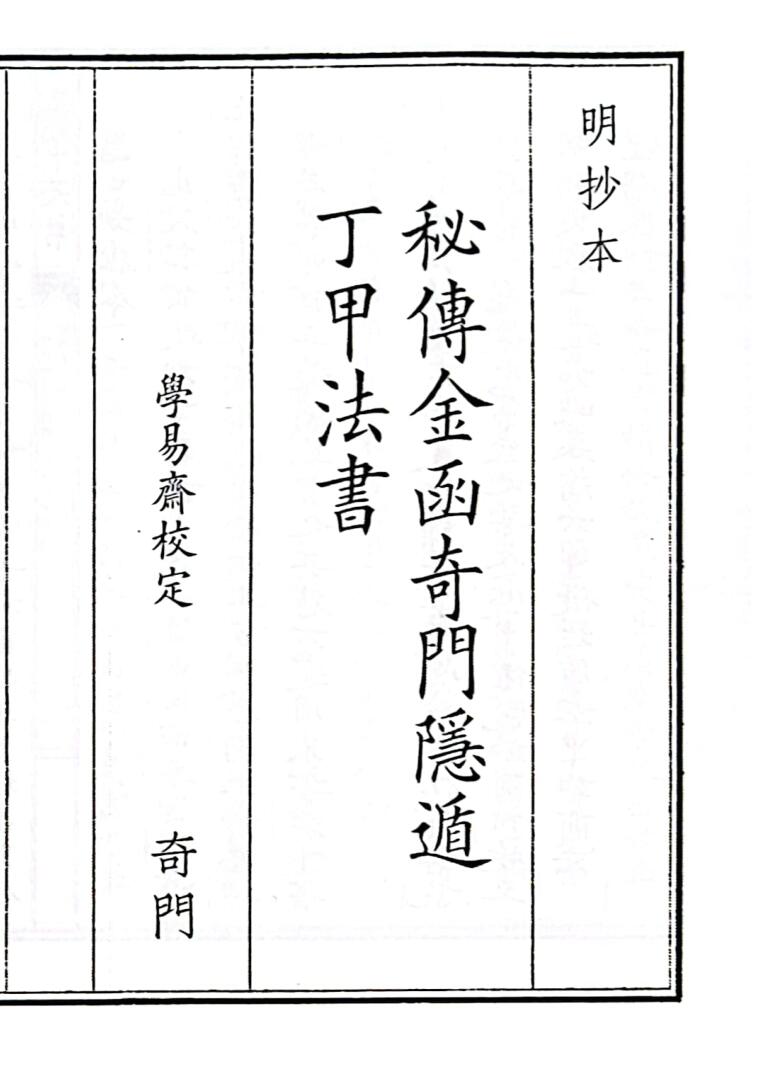 明抄本
秘傳金函奇門隱遁
丁甲法書
學易齋校定
奇門